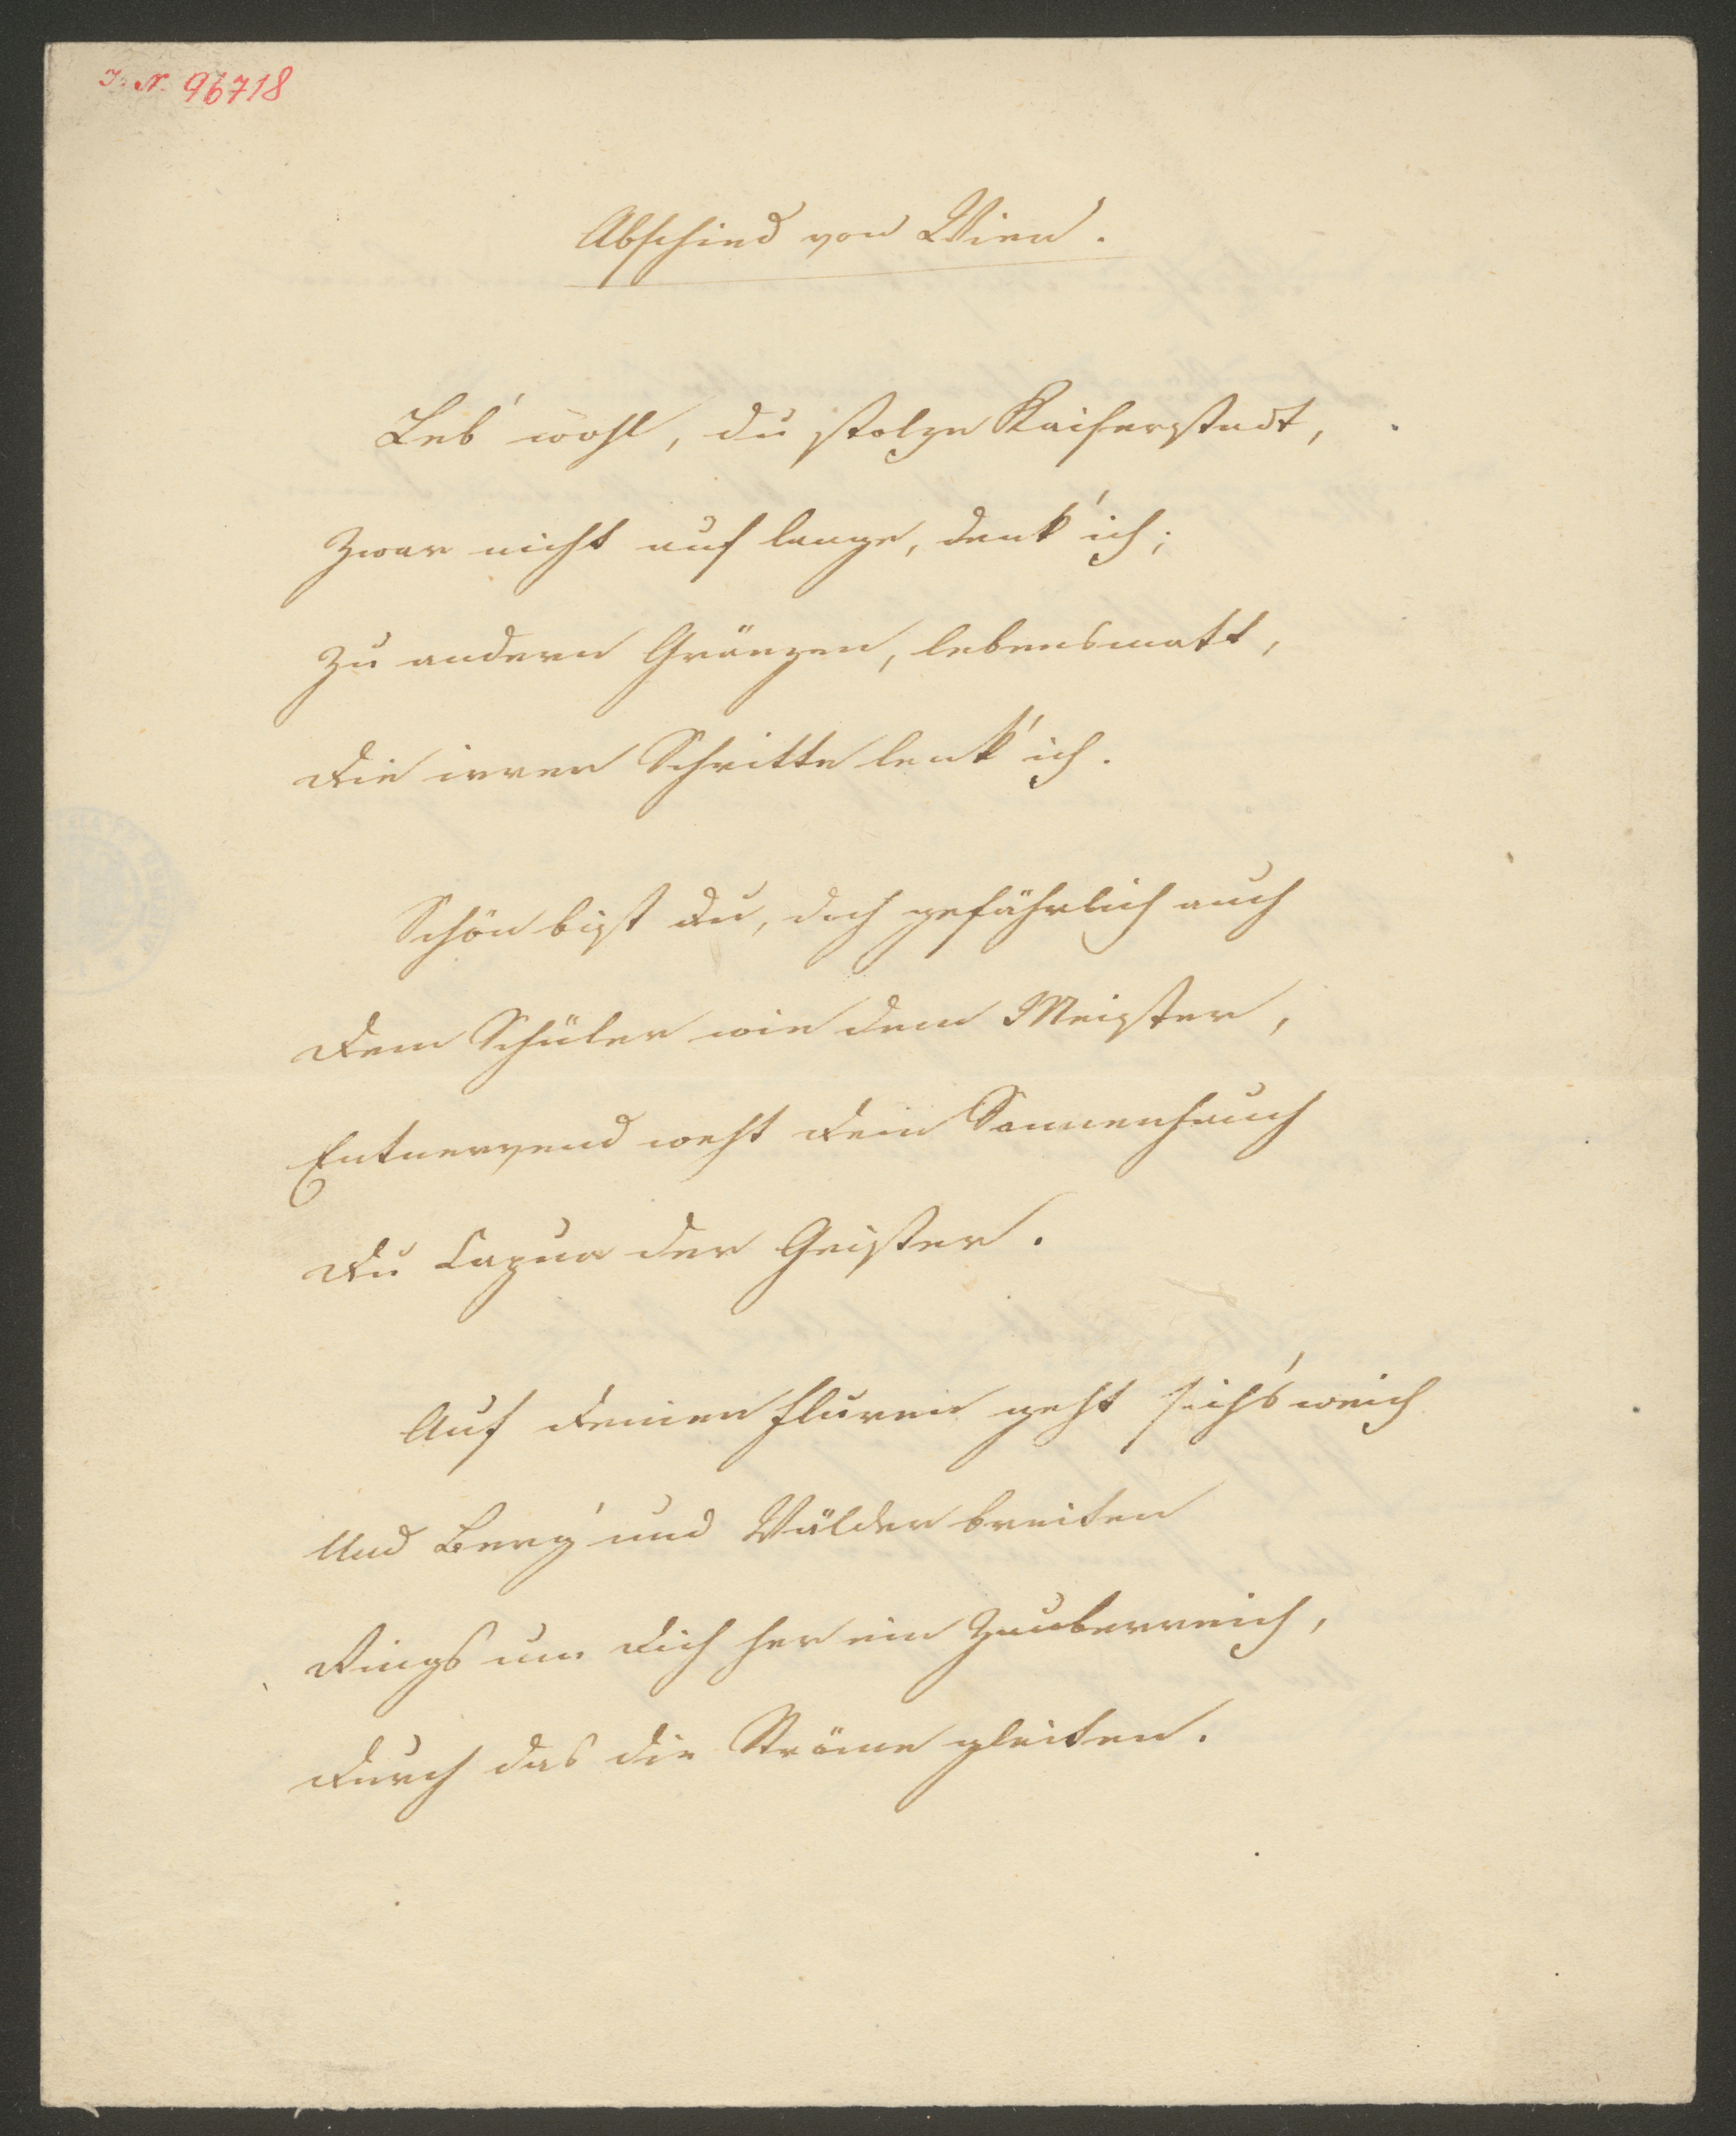 I. N. 96718
Abschied von Wien.
Leb' wohl, du stolze Kaiserstadt,
Zwar nicht auf lange, denk' ich;
Zu andern Gränzen, lebensmatt,
Die irren Schritte lenk' ich.
Schön bist du, doch gefährlich auch
Dem Schüler wie dem Meister,
Entnervend weht dein Sommerhauch
Du Capua der Geister.
Auf deinen Fluren geht sich's weich
Und Berg' und Wälder breiten
Rings um dich her ein Zauberreich,
Durch das die Ströme gleiten.